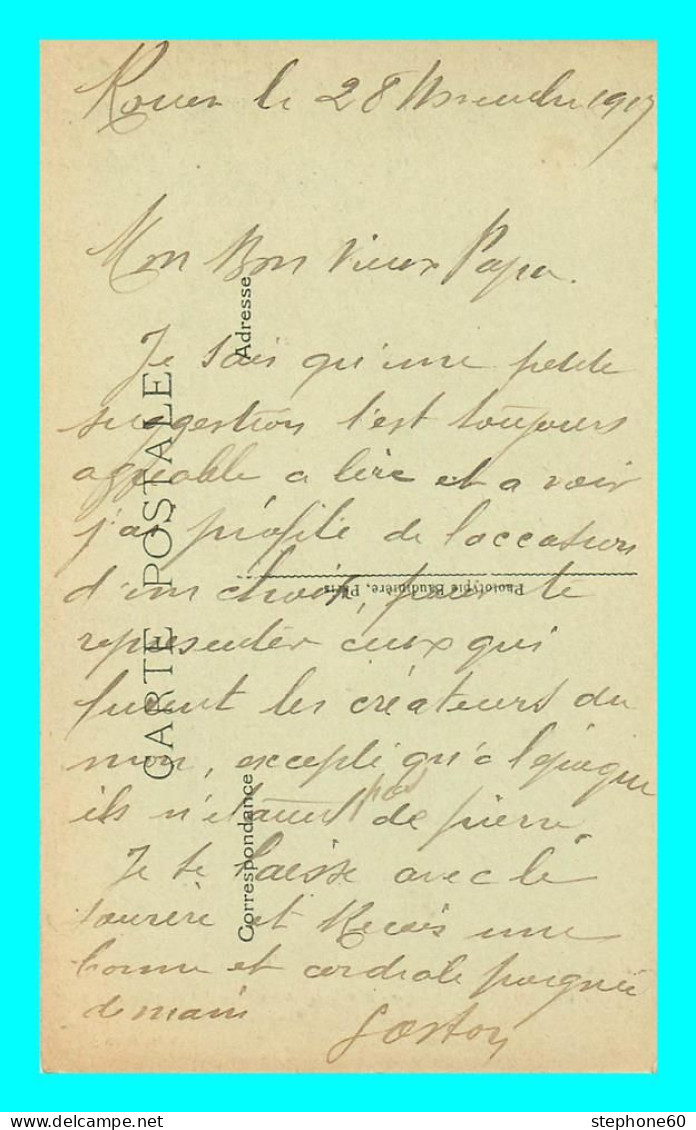 Rouen le 28 Novembre 1917
Mon Bon Vieux Papa.
Je sais qu'une petite
suggestion t'est toujours
agréable a lire et a voir
j'ai profité de l'occasion
d'un choix, pour te
representer ceux qui
furent les créateurs du
mon, excepté qu'a l'epoque
ils n'étaient pas de pierre.
Je te laisse avec le
sourire et Recois une
bonne et cordiale poignée
de main
Gaston
CARTE POSTALE
Correspondance
Adresse
Phototypie Baudinière, Paris
stephone60